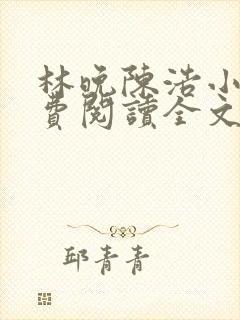 林晚陈浩小
費閱讀全文
邱青青